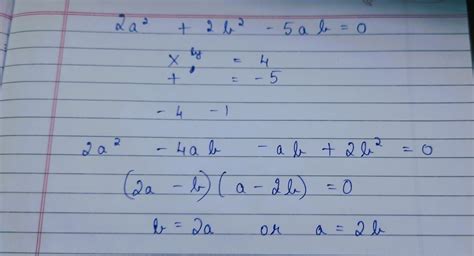 2a² + 2b² - 5ab = 0
x by = 4
+ " = -5
-4 -1
2a² - 4ab - ab + 2b² = 0
(2a - b)(a - 2b) = 0
b = 2a or a = 2b